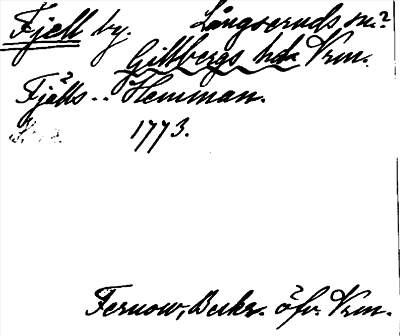 Fjell by. Långseruds sn.?
Gillbergs hd. Vrm.
Fjälls .. Hemman.
1773.
Fernow, Beskr. öfv. Vrm.